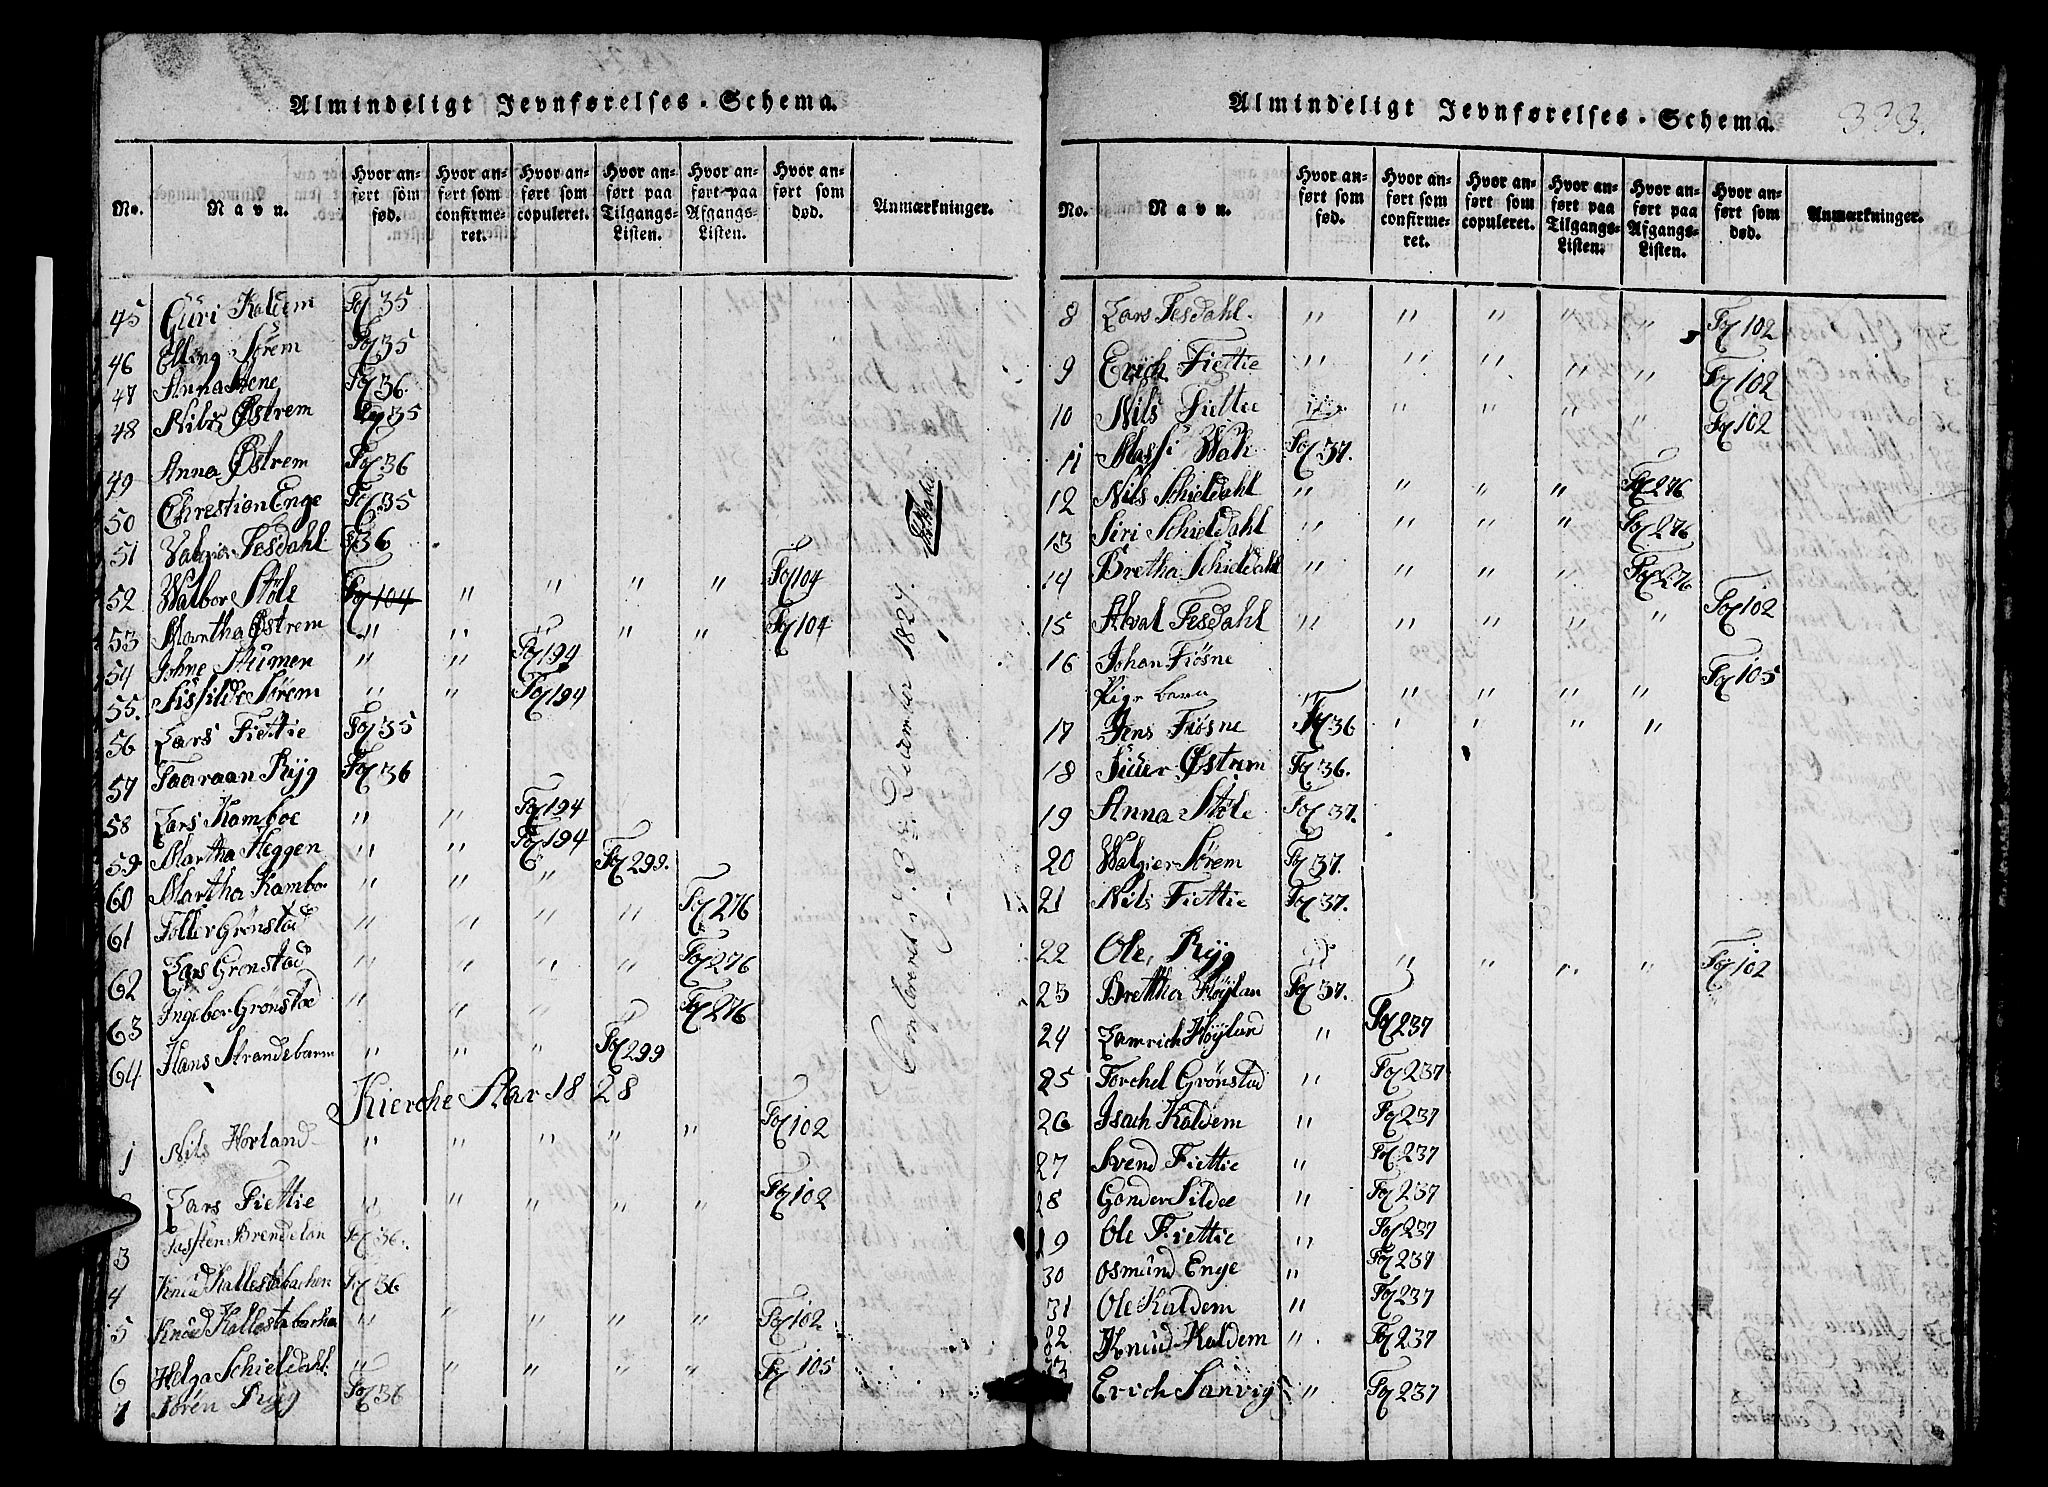 Almindeligt Jevnførelses-Schema.
No. Navn. Hvor anført som fød. Hvor anført som confirmeret. Hvor anført som copuleret. Hvor anført paa Tilgangs-Listen. Hvor anført paa Afgangs-Listen. Hvor anført som død. Anmærkninger.
45 Guri Kaldem Fol 35
46 Elling Sørem Fol 35
47 Anna Hene Fol 36
48 Nils Østrem Fol 35
49 Anna Østrem Fol 36
50 Chrestian Enge Fol 35
51 Valgier Tesdahl Fol 36
52 Walbor Støle Fol 104 " " " " Fol 104
53 Martha Østrem " " " " " Fol 104
54 Johne Stumen " " Fol 194
55. Sissilde Sørem " " Fol 194
56 Lars Fiettie Fol 35
57 Taaraan Ryg Fol 36
58 Lars Kamboe " " Fol 194
59 Martha Heggen " " Fol 194
60 Martha Kambo " " " Fol 299.
61 Toller Grønstad " " " " Fol 276
62 Lars Grønstad " " " " Fol 276
63 Ingebor Grønstad " " " " Fol 276
64 Hans Strandebarm " " " Fol 299
Kierche Aar 1828
1 Nils Horland " " " " " Fol 102
2 Lars Fiettie " " " " " Fol 102
3 Tassten Brendeløn Fol 36.
4 Knud Kallestabachen Fol 36
5 Knud Kallestabachen " " " " " Fol 102
6 Helga Schieldahl " " " " " Fol 105
7 Søren Rygg Fol 36
Confereret d. 3d. Decembr 1827.
Almindeligt Jevnførelses-Schema.
333.
No. Navn. Hvor anført som fød. Hvor anført som confirmeret. Hvor anført som copuleret. Hvor anført paa Tilgangs-Listen. Hvor anført paa Afgangs-Listen. Hvor anført som død. Anmærkninger.
8 Lars Tesdahl " " " " " Fol 102
9 Erich Fiettie " " " " " Fol 102
10 Nils Fiettie " " " " " Fol 102
11 Massi Wah Fol 37.
12 Nils Schieldahl " " " " Fol 276
13 Siri Schieldahl " " " " Fol 276
14 Bretha Schieldahl " " " " Fol 276
15 Aval Tesdahl " " " " " Fol 102
16 Johan Fiøsne
Pige barn " " " " " Fol 105
17 Jens Fiøsne Fol 36 " " " "
18 Siuer Østrem Fol 36.
19 Anna Støle Fol 37.
20 Walgier Sørem Fol 37.
21 Nils Fiettie Fol 37.
22 Ole Ryg " " " " " Fol 102
23 Brettha Høylan Fol 37.
24 Lamrich Høyland " Fol 237
25 Torchel Grønstad " Fol 237
26 Isach Kaldem " Fol 237
27 Svend Fiettie " Fol 237
28 Gonder Sildee " Fol 237
29 Ole Fiettie " Fol 237
30 Osmund Enge " Fol 237
31 Ole Kaldem " Fol 237
32 Knud Kaldem " Fol 237
33 Erich Sanvig " Fol 237